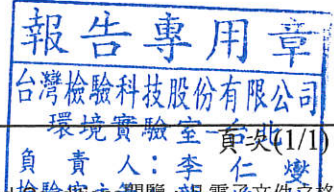 報告專用章
台灣檢驗科技股份有限公司
環境實驗室-台北
頁次(1/1)
負責人：李仁燮